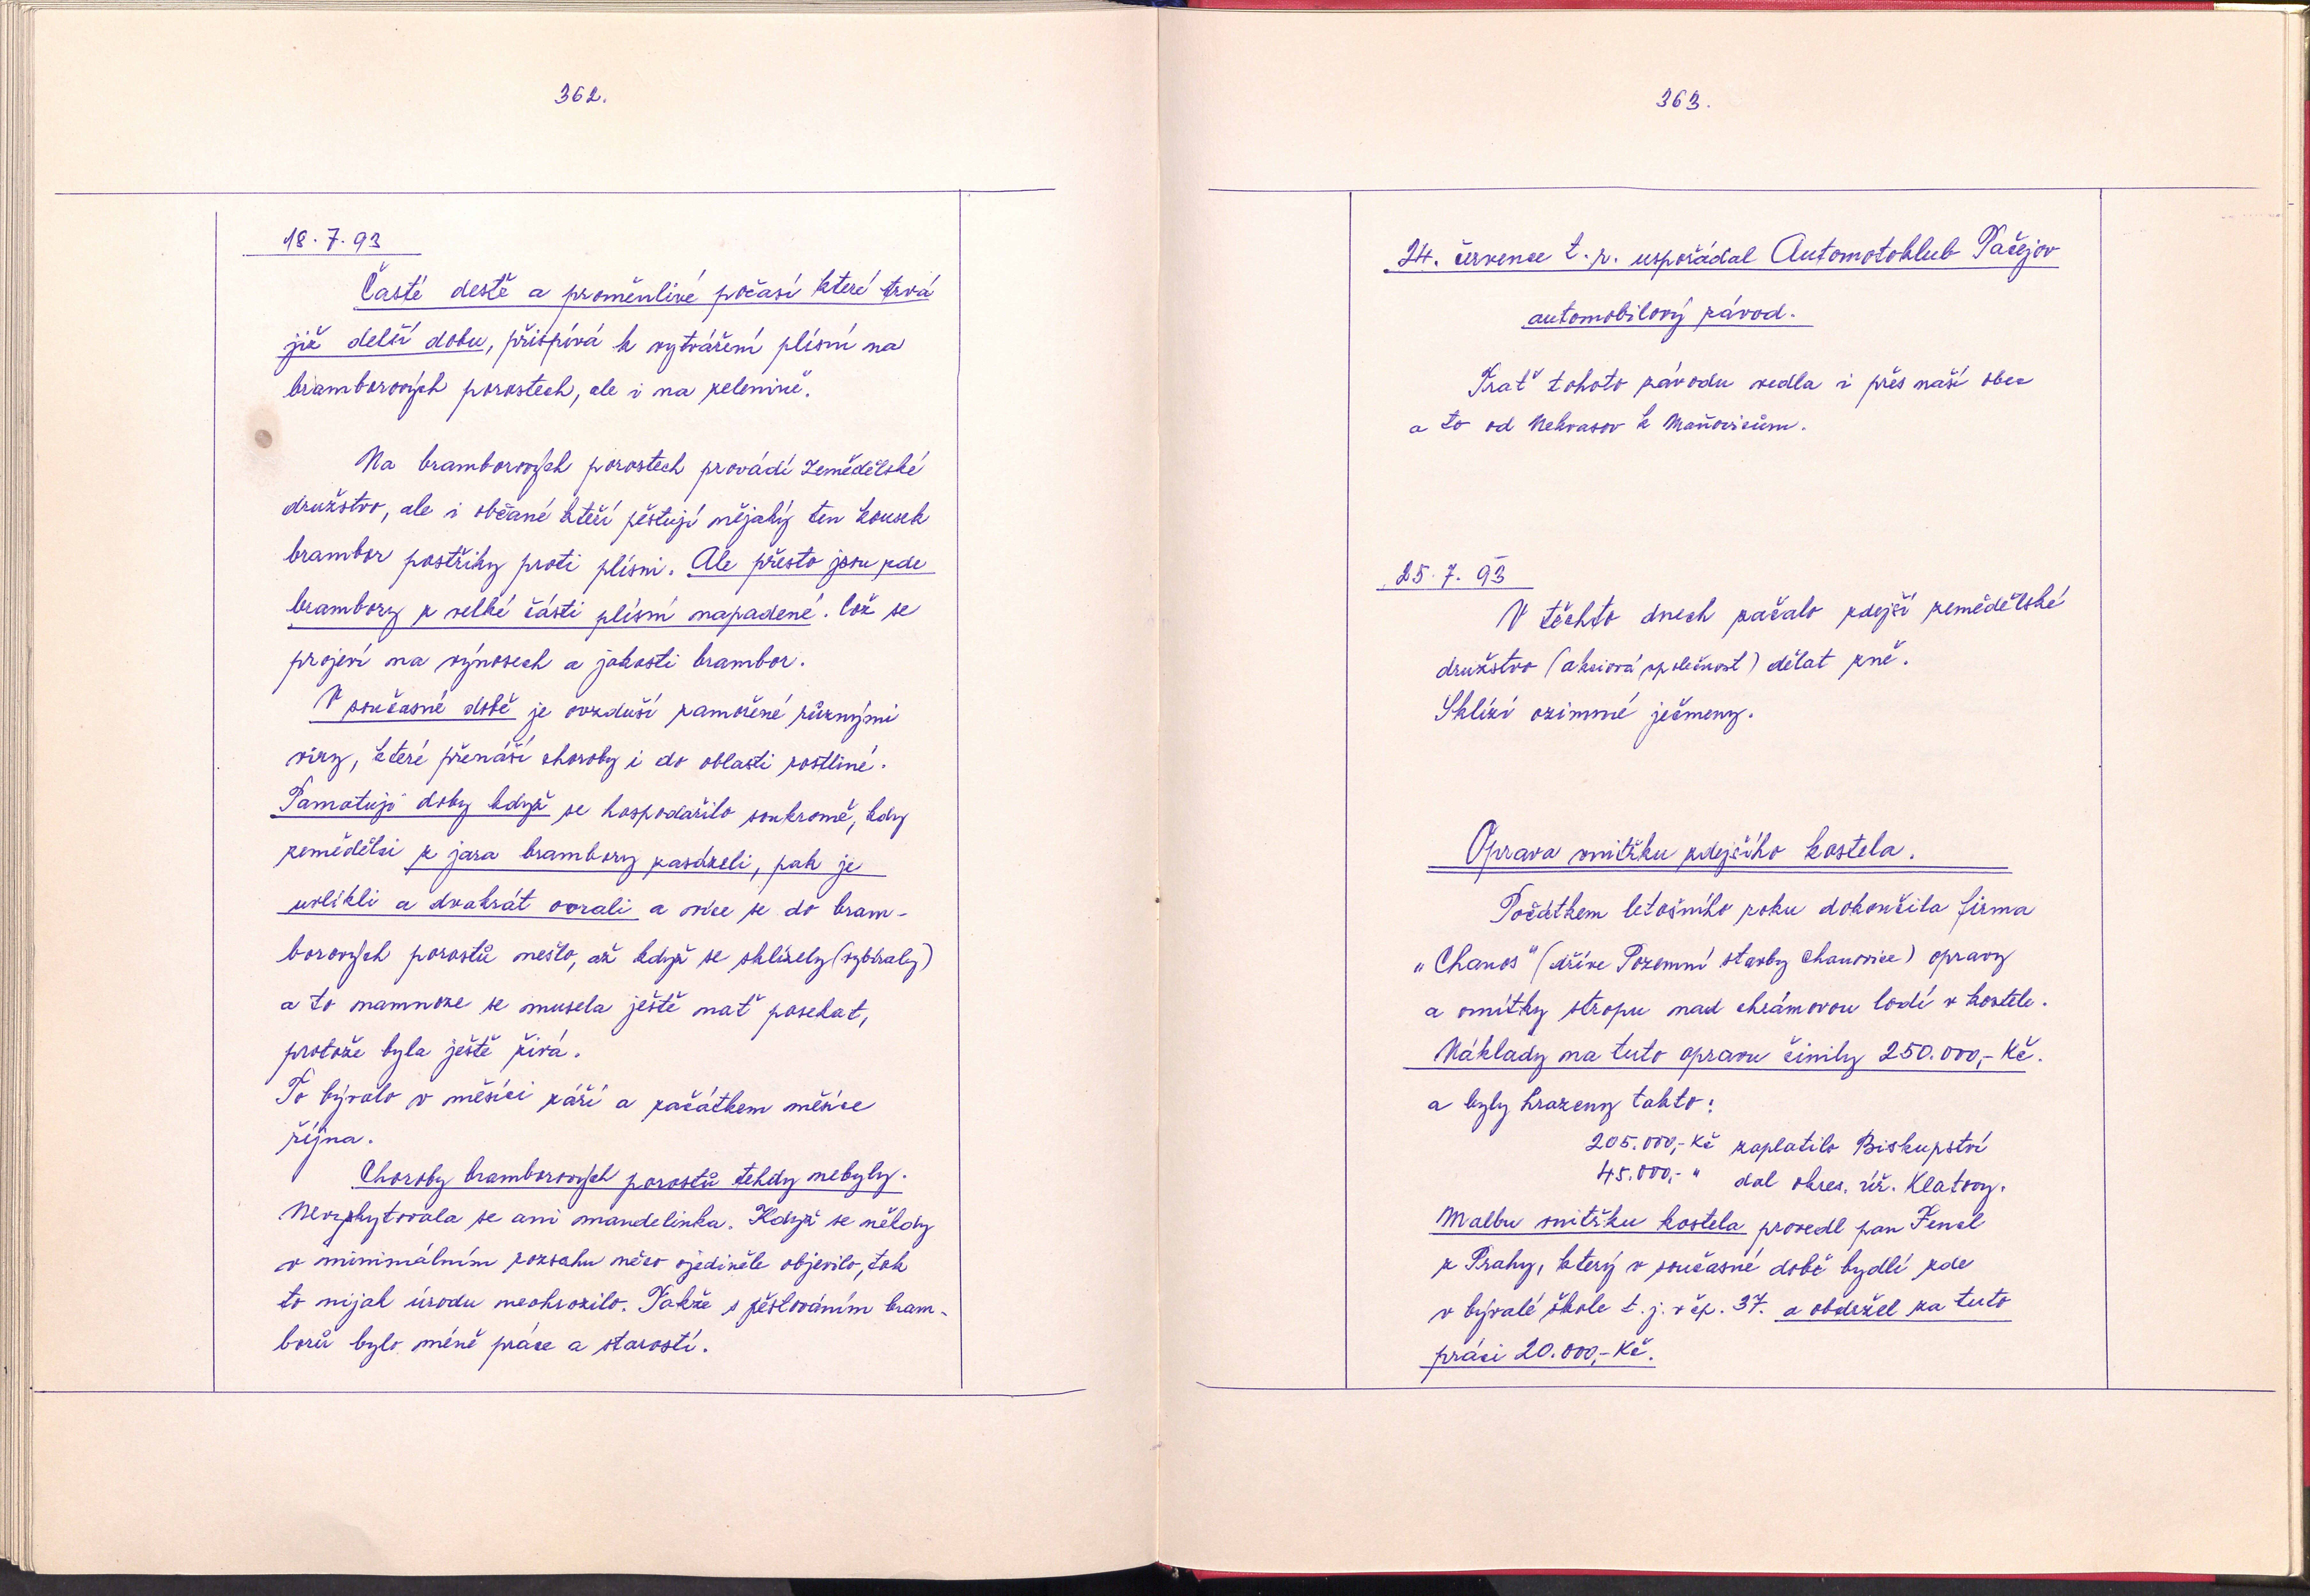 362.
18.7.93
Časté deště a proměnlivé počasí které trvá
již delší dobu, přispívá k vytváření plísní na
bramborových porostech, ale i na zelenině.
Na bramborových porostech provádí Zemědělské
družstvo, ale i občané kteří pěstují nějaký ten kousek
brambor postřiky proti plísni. Ale přesto jsou zde
brambory z velké části plísní napadené. Což se
projeví na výnosech a jakosti brambor.
V současné době je ovzduší zamořené různými
viry, které přenáší choroby i do oblasti rostliné.
Pamatuji doby když se hospodařilo soukromě, kdy
zemědělci z jara brambory zasázeli, pak je
uvlíkli a dvakrát oorali a více se do bram-
borových porostů nešlo, až když se sklízely (vybíraly)
a to mamnoze se musela ještě nať posekat,
protože byla ještě živá.
To bývalo v měsíci září a začátkem měsíce
října.
Choroby bramborových porostů tehdy nebyly.
Nevyskytovala se ani mandelinka. Když se někdy
v minimálním rozsahu něco ojediněle objevilo, tak
to nijak úrodu neohrozilo. Takže s pěstováním bram-
borů bylo méně práce a starostí.
363.
24. července t.r. uspořádal Automotoklub Pačejov
automobilový závod.
Trať tohoto závodu vedla i přes naší obec
a to od Nekvasov k Maňovicům.
25.7.93
V těchto dnech začalo zdejší zemědělské
družstvo (akciová společnost) dělat žně.
Sklízí ozimné ječmeny.
Oprava vnitřku zdejšího kostela.
Počátkem letošního roku dokončila firma
"Chanos" (dříve Pozemní stavby Chanovice) opravy
a omítky stropu nad chrámovou lodí v kostele.
Náklady na tuto opravu činily 250.000,- Kč.
a byly hrazeny takto:
205.000,- Kč zaplatilo Biskupství
45.000,- " dal okres. úř. Klatovy.
Malbu vnitřku kostela provedl pan Fencl
z Prahy, který v současné době bydlí zde
v bývalé škole t.j. v čp. 37. a obdržel za tuto
práci 20.000,- Kč.